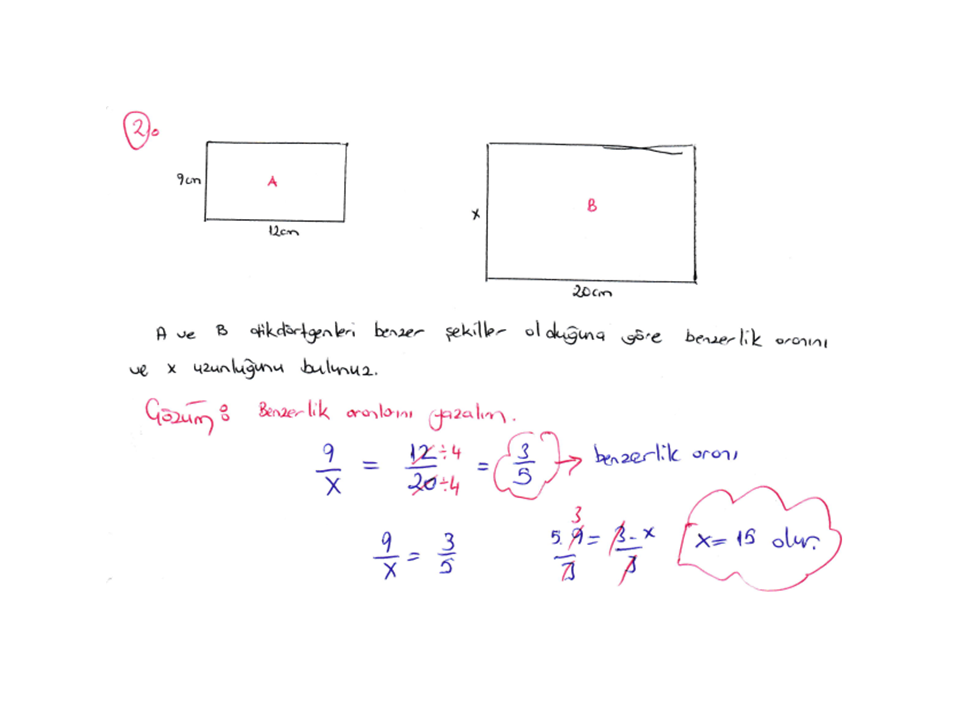 2.
9cm
A
12cm
x
B
20cm
A ve B dikdörtgenleri benzer şekiller olduğuna göre benzerlik oranını
ve x uzunluğunu bulunuz.
Çözüm: Benzerlik oranlarını yazalım.
9/x = 12÷4/20÷4 = 3/5 → benzerlik oranı
9/x = 3/5
3
5.9/3 = 3.x/3
x = 15 olur.